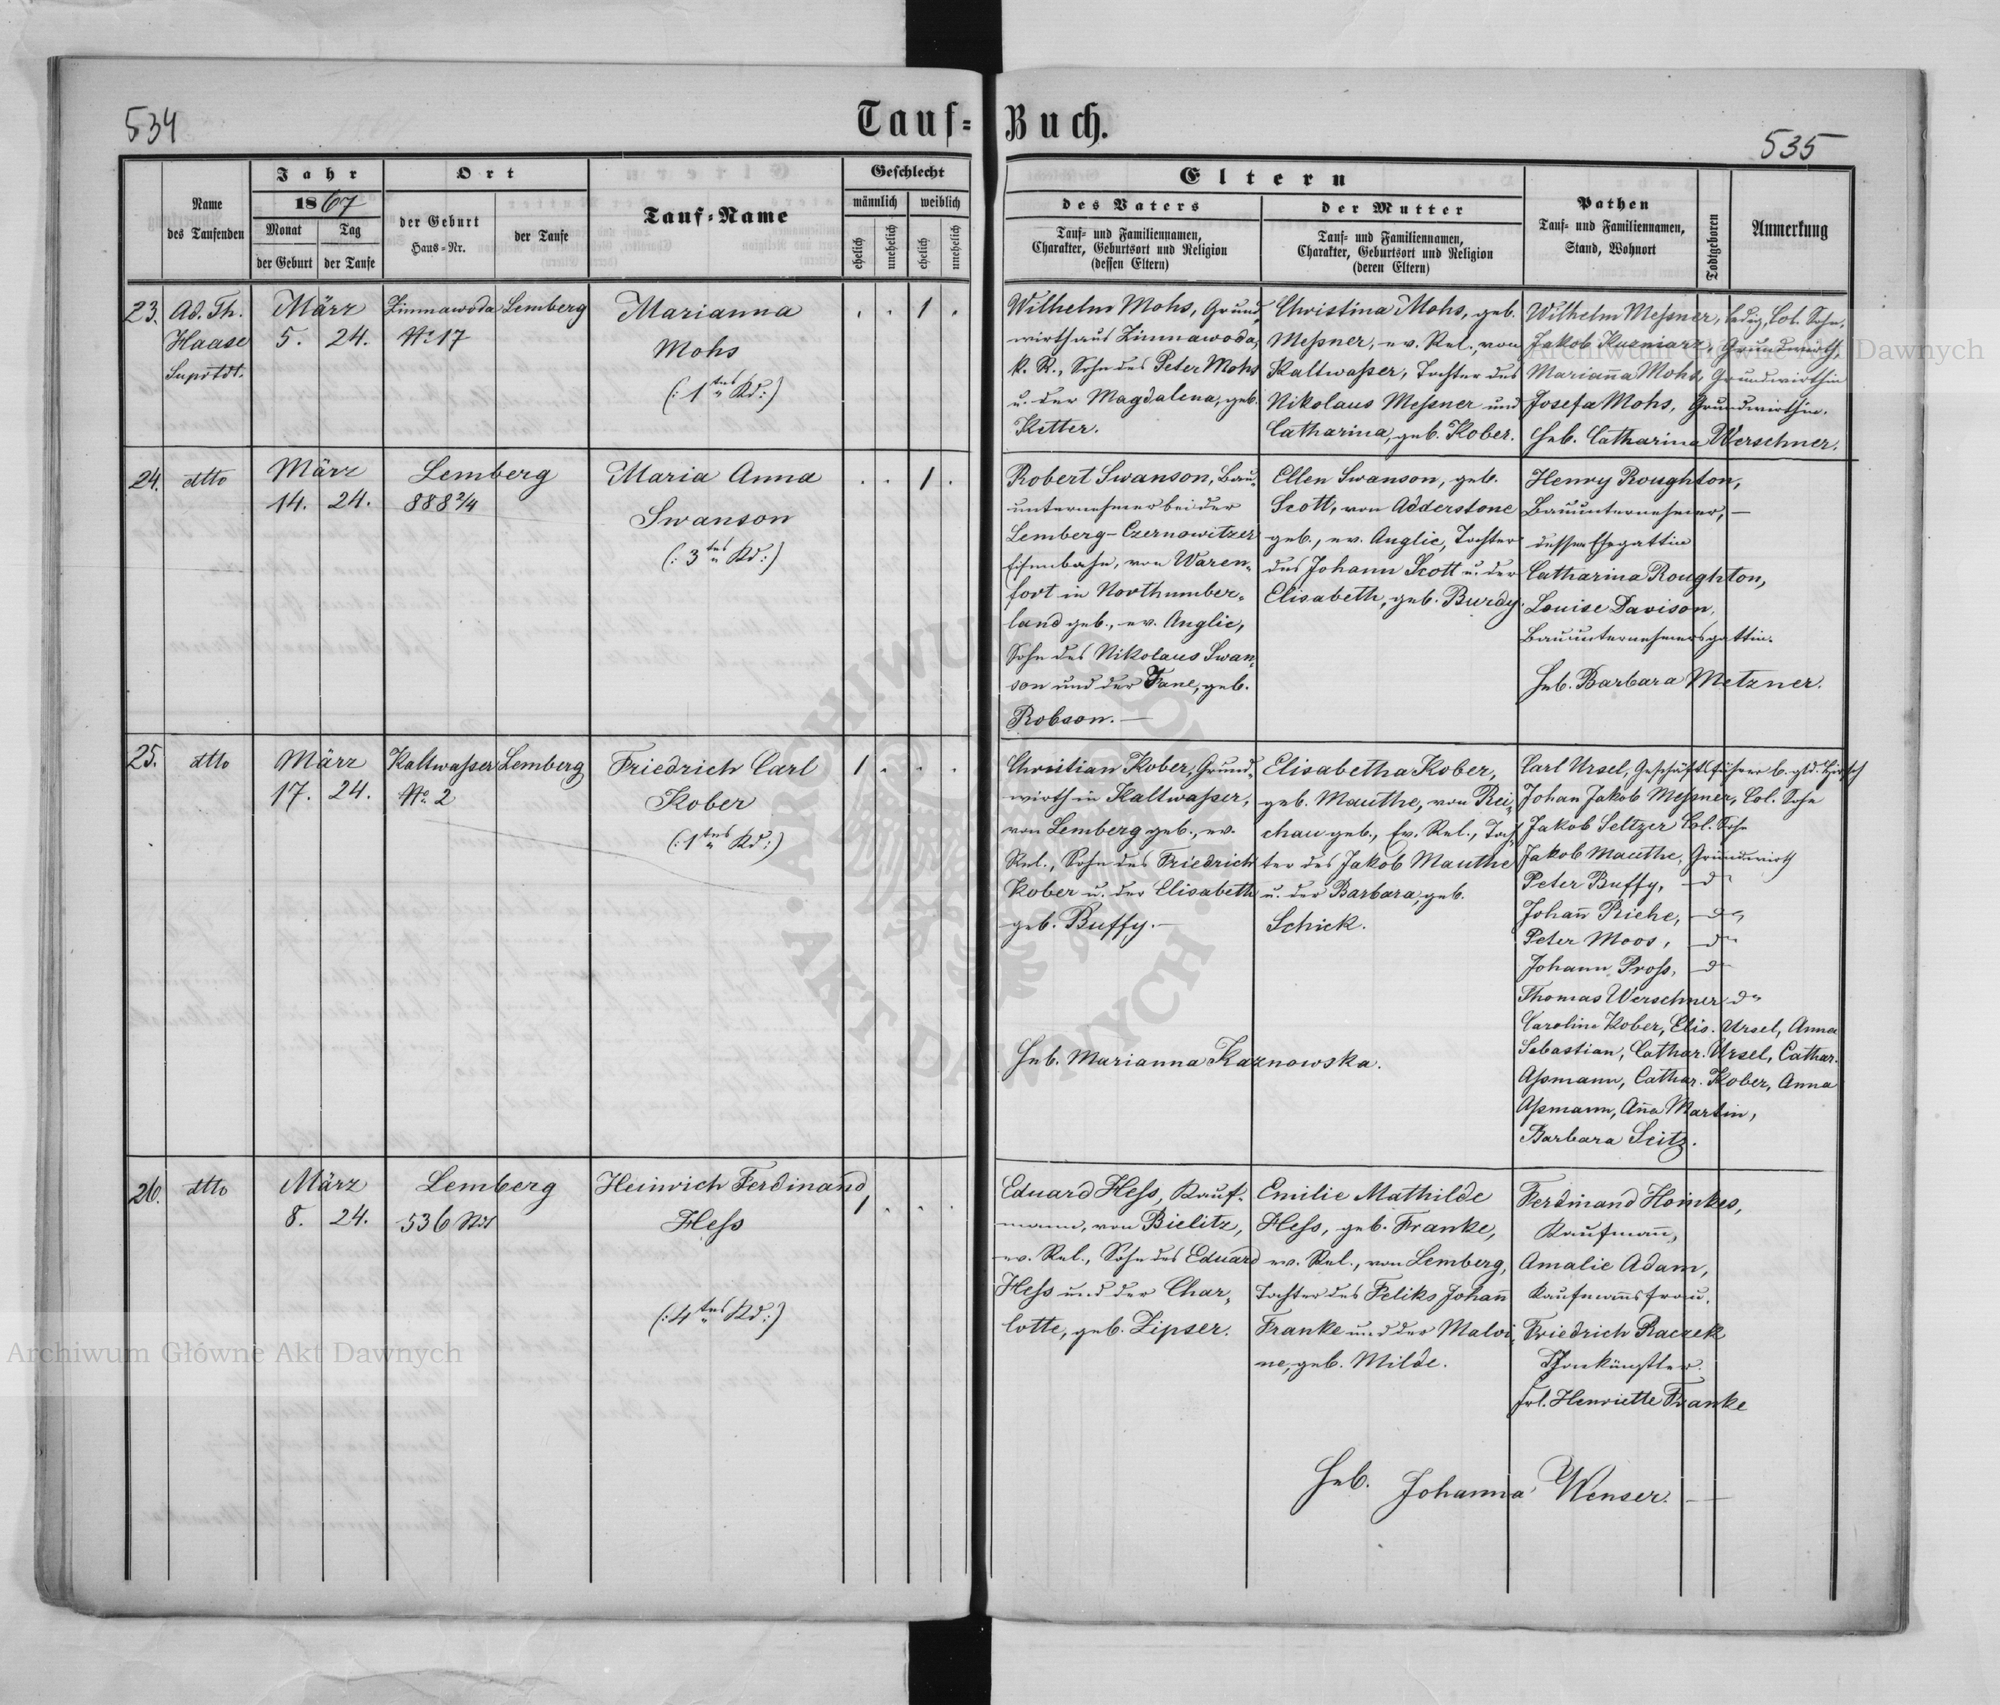 534
Tauf=
Buch.
535
Name
des Taufenden
Jahr
1867
Monat
der Geburt
Tag
der Taufe
Ort
der Geburt
Haus=Nr.
der Taufe
Tauf=Name
Geschlecht
männlich
weiblich
ehelich
unehelich
ehelich
unehelich
Eltern
des Vaters
Tauf= und Familiennamen,
Charakter, Geburtsort und Religion
(dessen Eltern)
der Mutter
Tauf= und Familiennamen,
Charakter, Geburtsort und Religion
(deren Eltern)
Pathen
Tauf= und Familiennamen,
Stand, Wohnort
Todtgeboren
Anmerkung
23.
Ad. Th.
Haase
Suprtdt.
März
5. 24.
Zimnawoda
No 17
Lemberg
Marianna
Mohs
(: 1tes Kd :)
. . 1 .
Wilhelm Mohs, Grund-
wirth aus Zimnawoda,
k. R., Sohn des Peter Mohs
u. der Magdalena, geb.
Ketter.
Christina Mohs, geb.
Meßner, ev. Rel., von
Kaltwaßer, Tochter des
Nikolaus Meßner und
Catharina, geb. Kober.
Wilhelm Meßner, ledig, Col. Sohn.
Jakob Kuzniarz, Grundwirth,
Marian̄a Mohs, Grundwirthin
Josefa Mohs, Grundwirthin.
Heb. Catharina Werschner.
24.
dtto
März
14. 24.
Lemberg
888 2/4
Maria Anna
Swanson
(: 3tes Kd :)
. . 1 .
Robert Swanson, Bau-
unternehmer bei der
Lemberg-Czernowitzer
Eisenbahn, von Waren-
fort in Northumber-
land geb., ev. Anglic,
Sohn des Nikolaus Swan-
son und der Jane, geb.
Robson. —
Ellen Swanson, geb.
Scott, von Adderstone
geb., ev. Anglic, Tochter
des Johann Scott u. der
Elisabeth, geb. Burdy.
Henry Roughton,
Bauunternehmer, —
dessen Ehegattin
Catharina Roughton,
Louise Davison,
Bauunternehmersgattin.
Heb. Barbara Metzner.
25.
dtto
März
17. 24.
Kaltwaßer
No. 2
Lemberg
Friedrich Carl
Kober
(: 1tes Kd :)
1 . . .
Christian Kober, Grund-
wirth in Kaltwaßer,
von Lemberg geb., ev.
Rel., Sohn des Friedrich
Kober u. der Elisabeth
geb. Buffy. —
Elisabetha Kober,
geb. Mauthe, von Rei-
chau geb., Ev. Rel., Toch-
ter des Jakob Mauthe
u. der Barbara, geb.
Schick.
Carl Ursel, Geschäftsführer b.
Johan Jakob Meßner, Col. Sohn
Jakob Seltzer Col. Sohn
Jakob Mauthe, Grundwirth
Peter Buffy, — do
Johan̄ Riehe, — do
Peter Moos, — do
Johann Proß, — do
Thomas Werschner do
Caroline Kober, Elis. Ursel, Anna
Sebastian, Cathar. Ursel, Cathar.
Aßmann, Cathar. Kober, Anna
Aßmann, An̄a Martin,
Barbara Seitz.
Heb. Marianna Kaznowska.
26.
dtto
März
8. 24.
Lemberg
536 Stdt
Heinrich Ferdinand
Heß
(: 4tes Kd :)
1 . . .
Eduard Heß, Kauf-
mann, von Bielitz,
ev. Rel., Sohn des Eduard
Heß und der Char-
lotte, geb. Zipser.
Emilie Mathilde
Heß, geb. Franke,
ev. Rel., von Lemberg,
Tochter des Feliks Johan̄
Franke und der Malvi-
ne, geb. Milde.
Ferdinand Hoinkes,
Kaufman̄,
Amalie Adam,
Kaufman̄sfrau,
Friedrich Raczek
Thonkünstler.
Frl. Henriette Franke
Heb. Johanna Wenser. —
Archiwum Główne Akt Dawnych
Archiwum Główne Akt Dawnych
ARCHIWUM GŁÓWNE AKT DAWNYCH